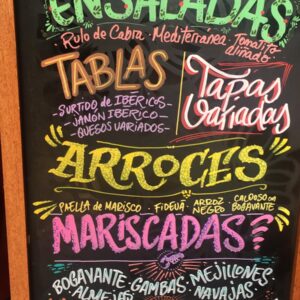 ENSALADAS
Rulo de Cabra · Mediterranea · Tomatito
aliñado
TABLAS
-SURTIDO de IBÉRICOS-
-JAMÓN IBÉRICO-
-QUESOS VARIADOS-
Tapas
Variadas
ARROCES
PAELLA de MARISCO · FIDEUA · ARROZ NEGRO · CALDOSO de BOGAVANTE
MARISCADAS
BOGAVANTE · GAMBAS · MEJILLONES
NAVAJAS